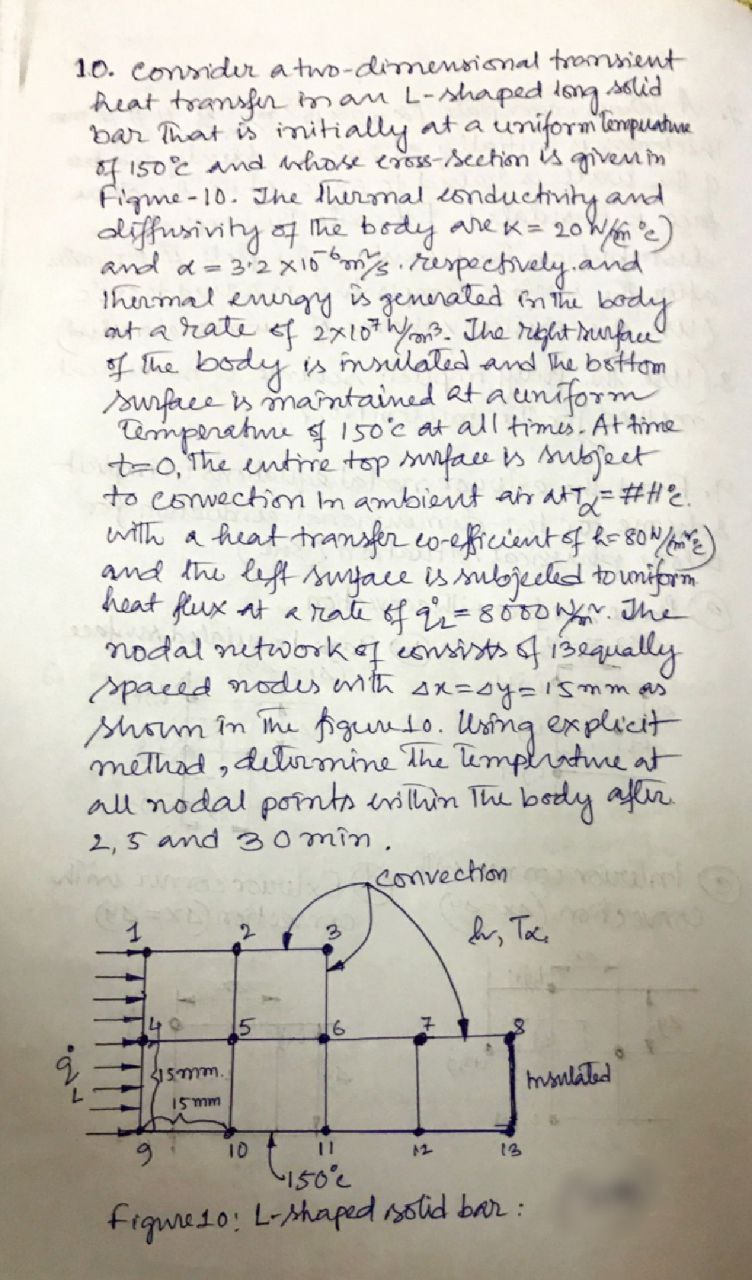 10. Consider a two-dimensional transient
heat transfer in an L-shaped long solid
bar that is initially at a uniform temperature
of 150°c and whose cross-section is given in
Figure-10. The thermal conductivity and
diffusivity of the body are K = 20 W/(m °c)
and α = 3.2 × 10⁻⁶ m²/s. respectively. and
thermal energy is generated in the body
at a rate of 2×10⁷ W/m³. The right surface
of the body is insulated and the bottom
surface is maintained at a uniform
temperature of 150°c at all times. At time
t=0, The entire top surface is subject
to convection in ambient air at Tα =
with a heat transfer co-efficient of h= 80 W/(m²°c)
and the left surface is subjected to uniform
heat flux at a rate of q̇L = 8000 W/m². The
nodal network of consists of 13 equally
spaced nodes with Δx=Δy= 15mm as
shown in the figure 10. Using explicit
method, determine the temperature at
all nodal points within the body after
2, 5 and 30 min.
convection
1 2 3 h, Tα.
4 5 6 7 8
q̇L 15mm. Insulated
15 mm
9 10 11 12 13
150°c
Figure 10: L-shaped solid bar: